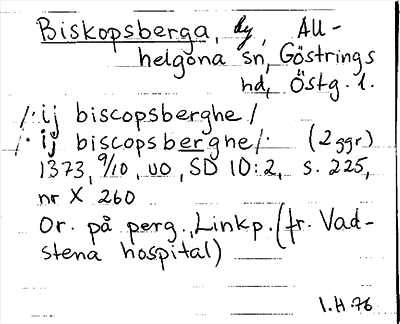 Biskopsberga, by, All-
helgona sn, Göstrings
hd, Östg. l.
/: ij biscopsberghe /
/: ij biscopsberghe /: (2 ggr)
1373, 9/10, uo, SD 10:2, s. 225,
nr X 260
Or. på perg., Linkp. (fr. Vad-
stena hospital)
I.H. 76